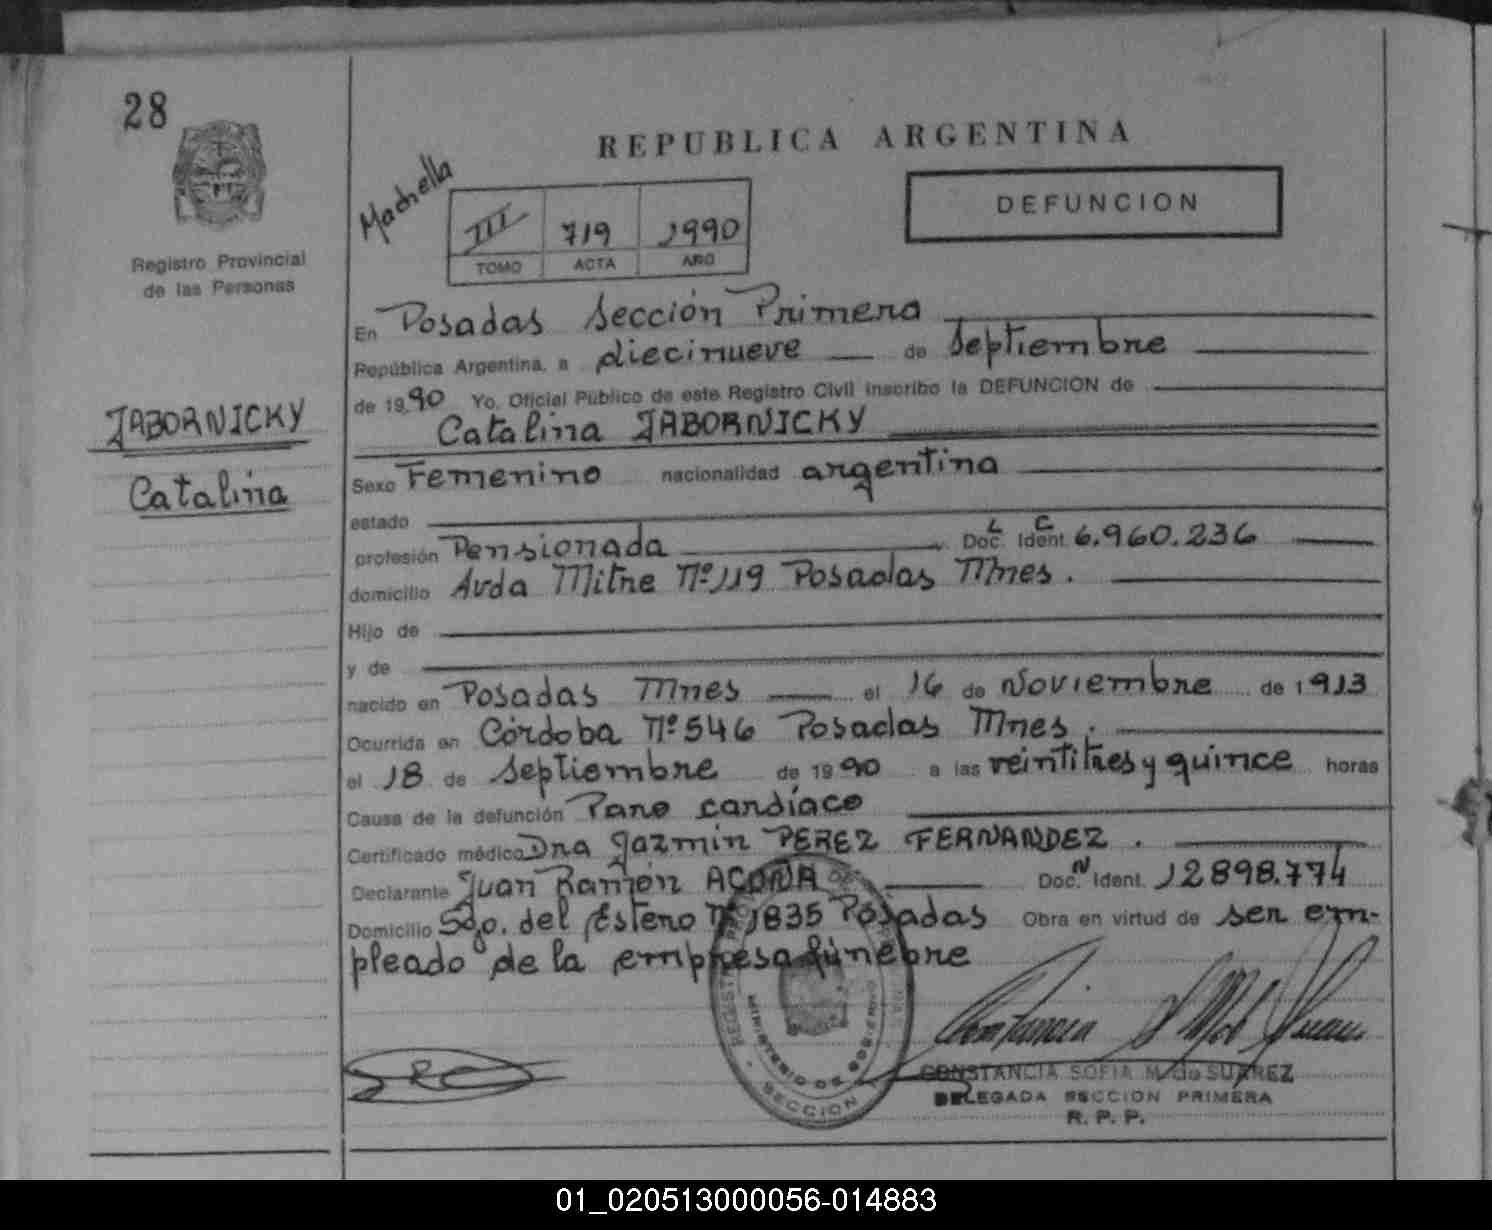 28
REPUBLICA ARGENTINA
Machella
III 719 1990
TOMO ACTA AÑO
DEFUNCION
Registro Provincial
de las Personas
JABORNICKY
Catalina
En Posadas Sección Primera
República Argentina, a diecinueve de Septiembre
de 1990 Yo, Oficial Público de este Registro Civil inscribo la DEFUNCION de
Catalina JABORNICKY
Sexo Femenino nacionalidad argentina
estado
profesión Pensionada L C Doc. Ident. 6.960.236
domicilio Avda Mitre Nº 119 Posadas Mnes.
Hijo de
y de
nacido en Posadas Mnes el 16 de Noviembre de 1913
Ocurrida en Córdoba Nº 546 Posadas Mnes.
el 18 de Septiembre de 1990 a las veintitres y quince horas
Causa de la defunción Paro cardíaco
Certificado médico Dra Jazmín PEREZ FERNANDEZ.
Declarante Juan Ramón ACUÑA Doc. N Ident. 12898.774
Domicilio Sgo. del Estero Nº 1835 Posadas Obra en virtud de ser em-
pleado de la empresa fúnebre
REGISTRO
MINISTERIO DE GOBIERNO
SECCION
CONSTANCIA SOFIA M. de SUAREZ
DELEGADA SECCION PRIMERA
R. P. P.
01_020513000056-014883